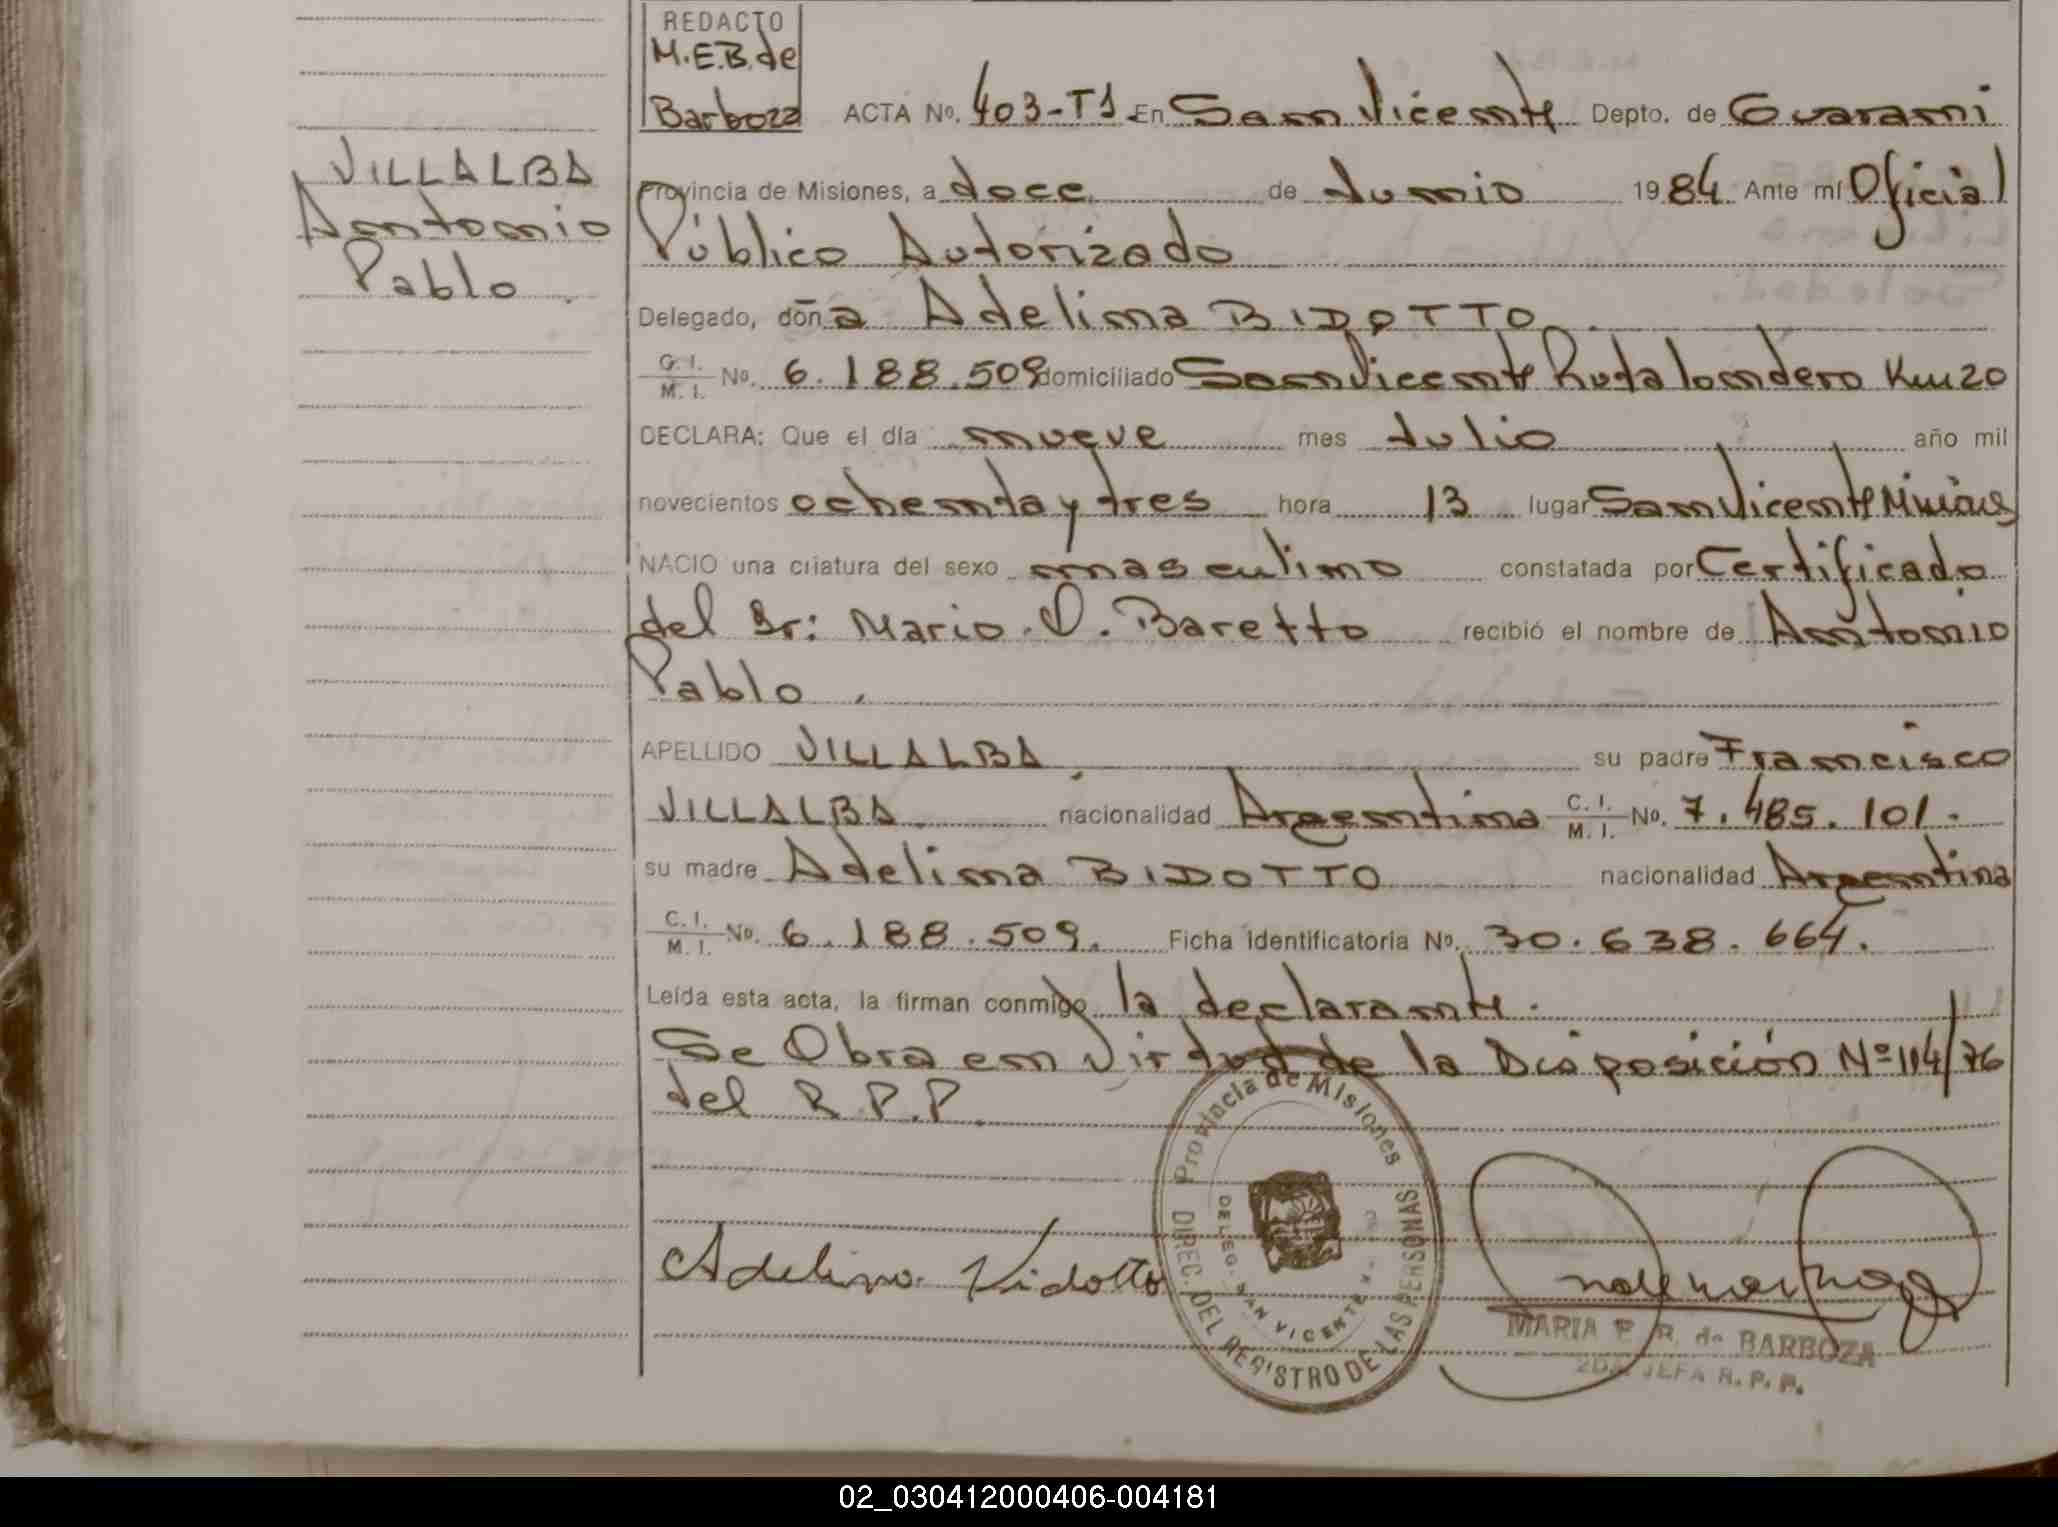 REDACTO
M.E.B. de
Barboza
ACTA No. 403-T1 En San Vicente Depto. de Guarani
VILLALBA
Antonio
Pablo
Provincia de Misiones, a doce de Junio 1984 Ante mí Oficial
Público Autorizado
Delegado, doña Adelina BIDOTTO
C. I. M. I. No. 6.188.509 domiciliado San Vicente Ruta londero Km 20
DECLARA: Que el día nueve mes Julio año mil
novecientos ochenta y tres hora 13 lugar San Vicente Misiones
NACIO una criatura del sexo masculino constatada por Certificado
del Sr: Mario. O. Baretto recibió el nombre de Antonio
Pablo.
APELLIDO VILLALBA. su padre Francisco
VILLALBA. nacionalidad Argentina C. I. M. I. No. 7.485.101.
su madre Adelina BIDOTTO nacionalidad Argentina
C. I. M. I. No. 6.188.509. Ficha Identificatoria No. 30.638.664.
Leída esta acta, la firman conmigo la declarante.
Se Obra en virtud de la Disposición Nº 114/76
del R.P.P.
Adelina Vidotto
Provincia de Misiones
DIREC. DEL REGISTRO DE LAS PERSONAS
DELEG. SAN VICENTE
MARIA E. R. de BARBOZA
2DA. JEFA R. P. P.
02_030412000406-004181